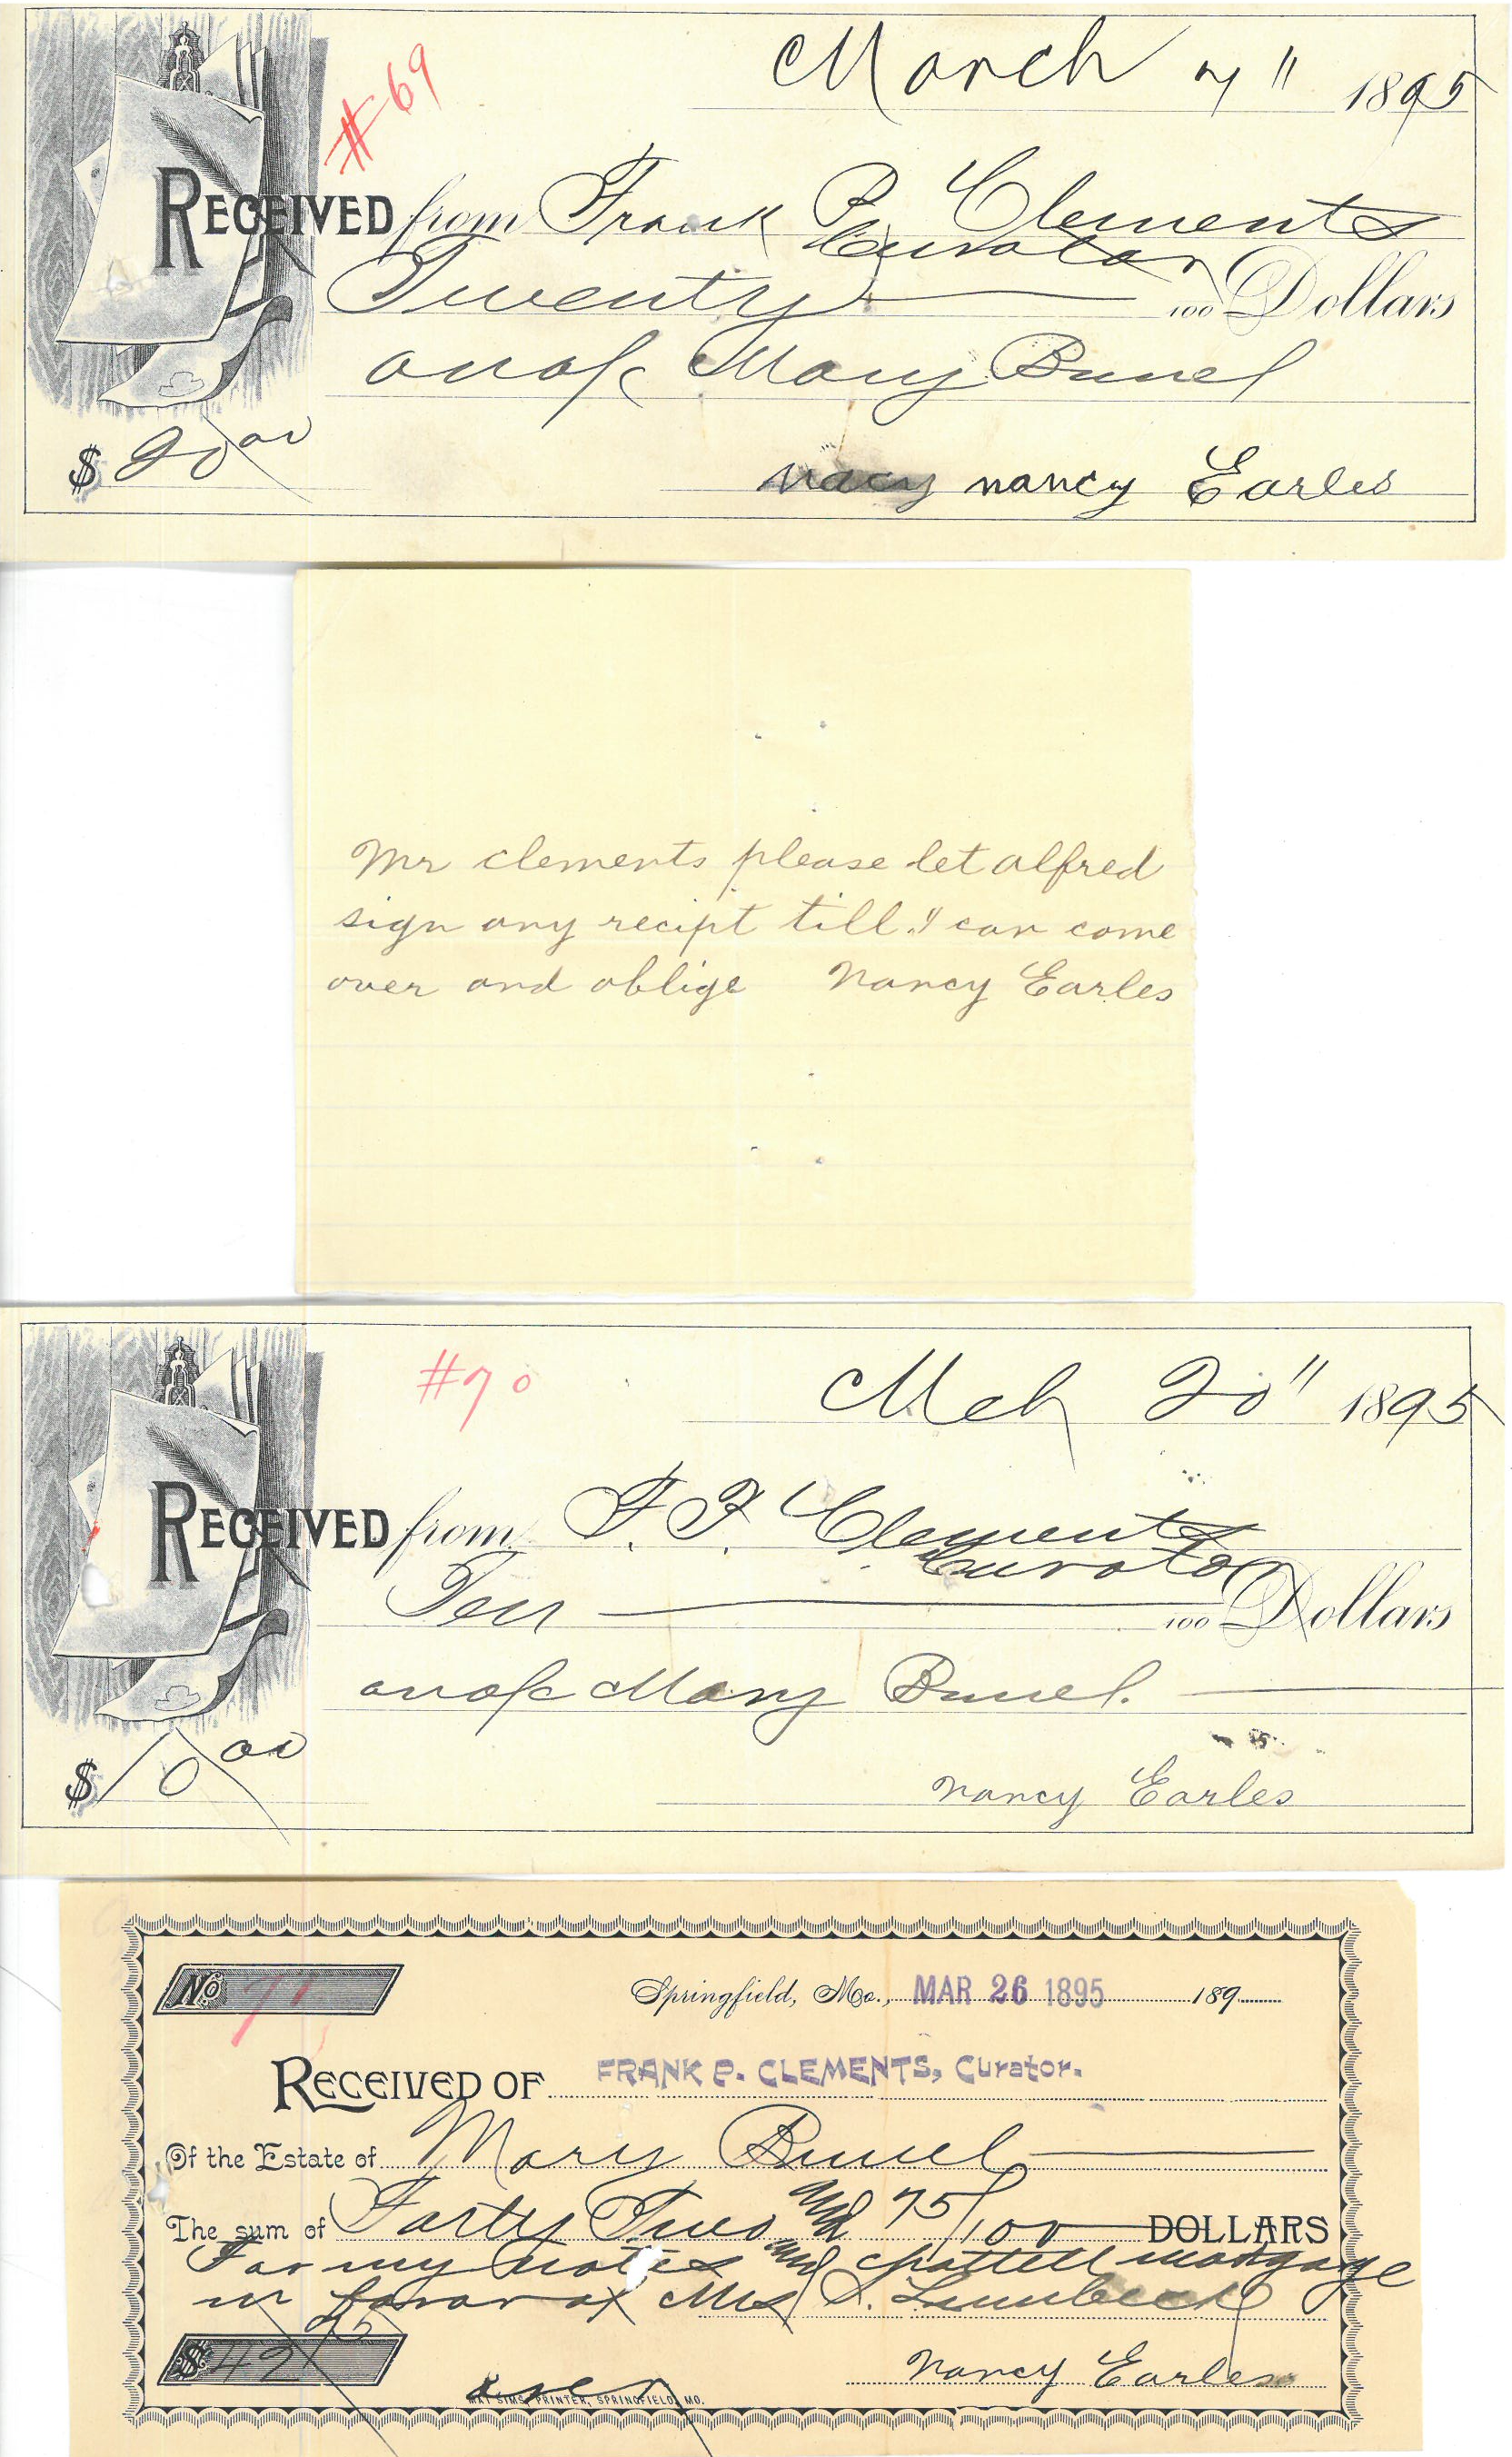 March 7" 1895
#69
RECEIVED from Frank P. Clements
Curator
Twenty 100 Dollars
on a/c Mary Bunel
$20 00
nacy nancy Earles
Mr clements please let alfred
sign any recipt till I can come
over and oblige Nancy Earles
#70
Mch 20" 1895
RECEIVED from F. P. Clements
Curator
Ten 100 Dollars
on a/c Mary Bunel.
$10 00
nancy Earles
No 71
Springfield, Mo., MAR 26 1895 189
RECEIVED OF FRANK P. CLEMENTS, Curator.
Of the Estate of Mary Bunel
The sum of Forty Two and 75/100 DOLLARS
For my notes and chattell mortgage
in favor of Mrs S.
$42 75
Nancy Earles
over
MAT SIMS, PRINTER, SPRINGFIELD, MO.